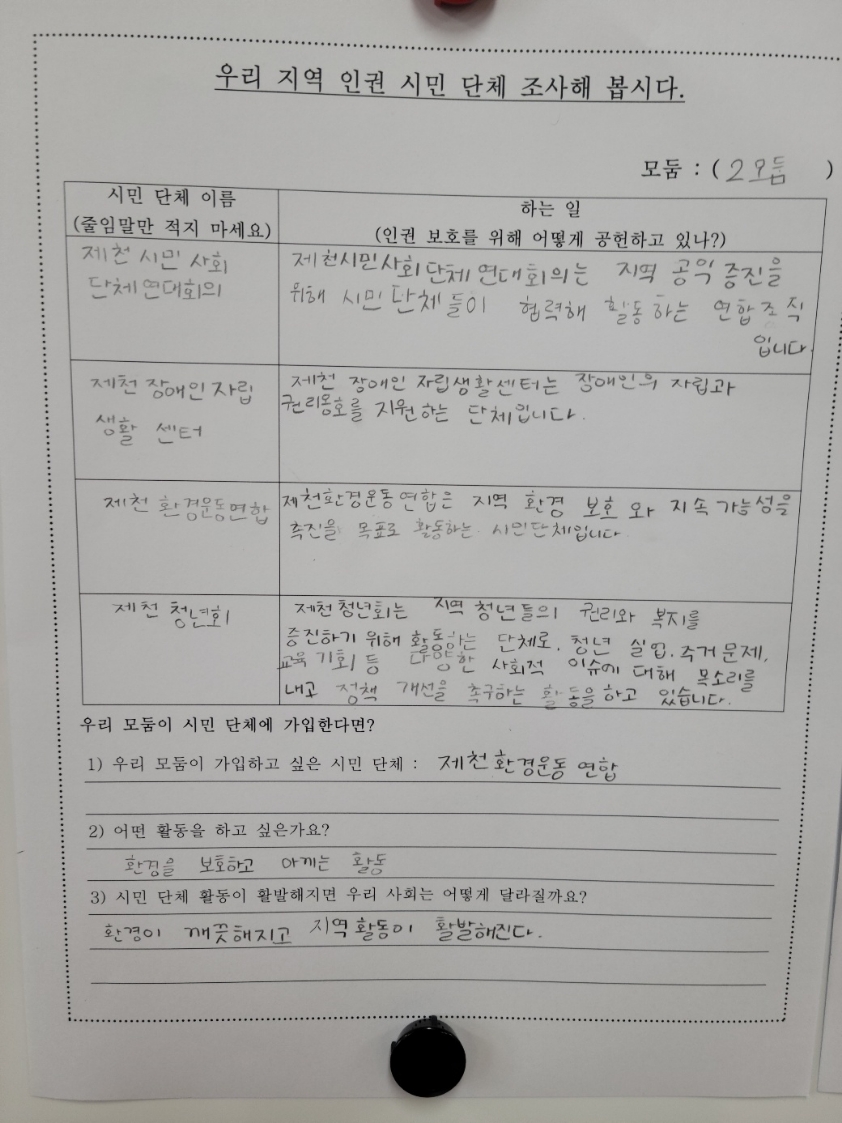 우리 지역 인권 시민 단체 조사해 봅시다.
모둠 : ( 2모둠 )
시민 단체 이름
(줄임말만 적지 마세요)
하는 일
(인권 보호를 위해 어떻게 공헌하고 있나?)
제천 시민 사회
단체연대회의
제천시민사회단체연대회의는 지역 공익증진을
위해 시민단체들이 협력해 활동하는 연합조직
입니다.
제천 장애인자립
생활 센터
제천 장애인 자립생활센터는 장애인의 자립과
권리옹호를 지원하는 단체입니다.
제천 환경운동연합
제천환경운동연합은 지역 환경 보호와 지속가능성을
촉진을 목표로 활동하는 시민단체입니다.
제천 청년회
제천청년회는 지역 청년들의 권리와 복지를
증진하기 위해 활동하는 단체로, 청년 실업, 주거문제,
교육 기회 등 다양한 사회적 이슈에 대해 목소리를
내고 정책 개선을 촉구하는 활동을하고 있습니다.
우리 모둠이 시민 단체에 가입한다면?
1) 우리 모둠이 가입하고 싶은 시민 단체 : 제천환경운동연합
2) 어떤 활동을 하고 싶은가요?
환경을 보호하고 아끼는 활동
3) 시민 단체 활동이 활발해지면 우리 사회는 어떻게 달라질까요?
환경이 깨끗해지고 지역활동이 활발해진다.